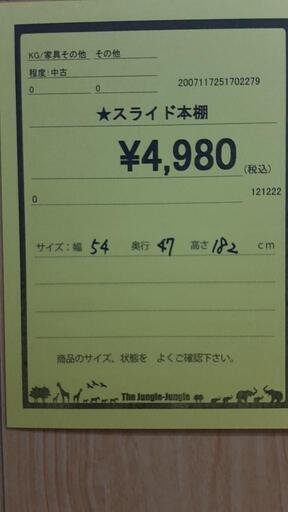 KG/家具その他 その他
程度:中古
2007117251702279
0 0
★スライド本棚
¥4,980(税込)
0 121222
サイズ:幅 54 奥行 47 高さ 182 cm
商品のサイズ、状態を よくご確認下さい。
The Jungle-Jungle